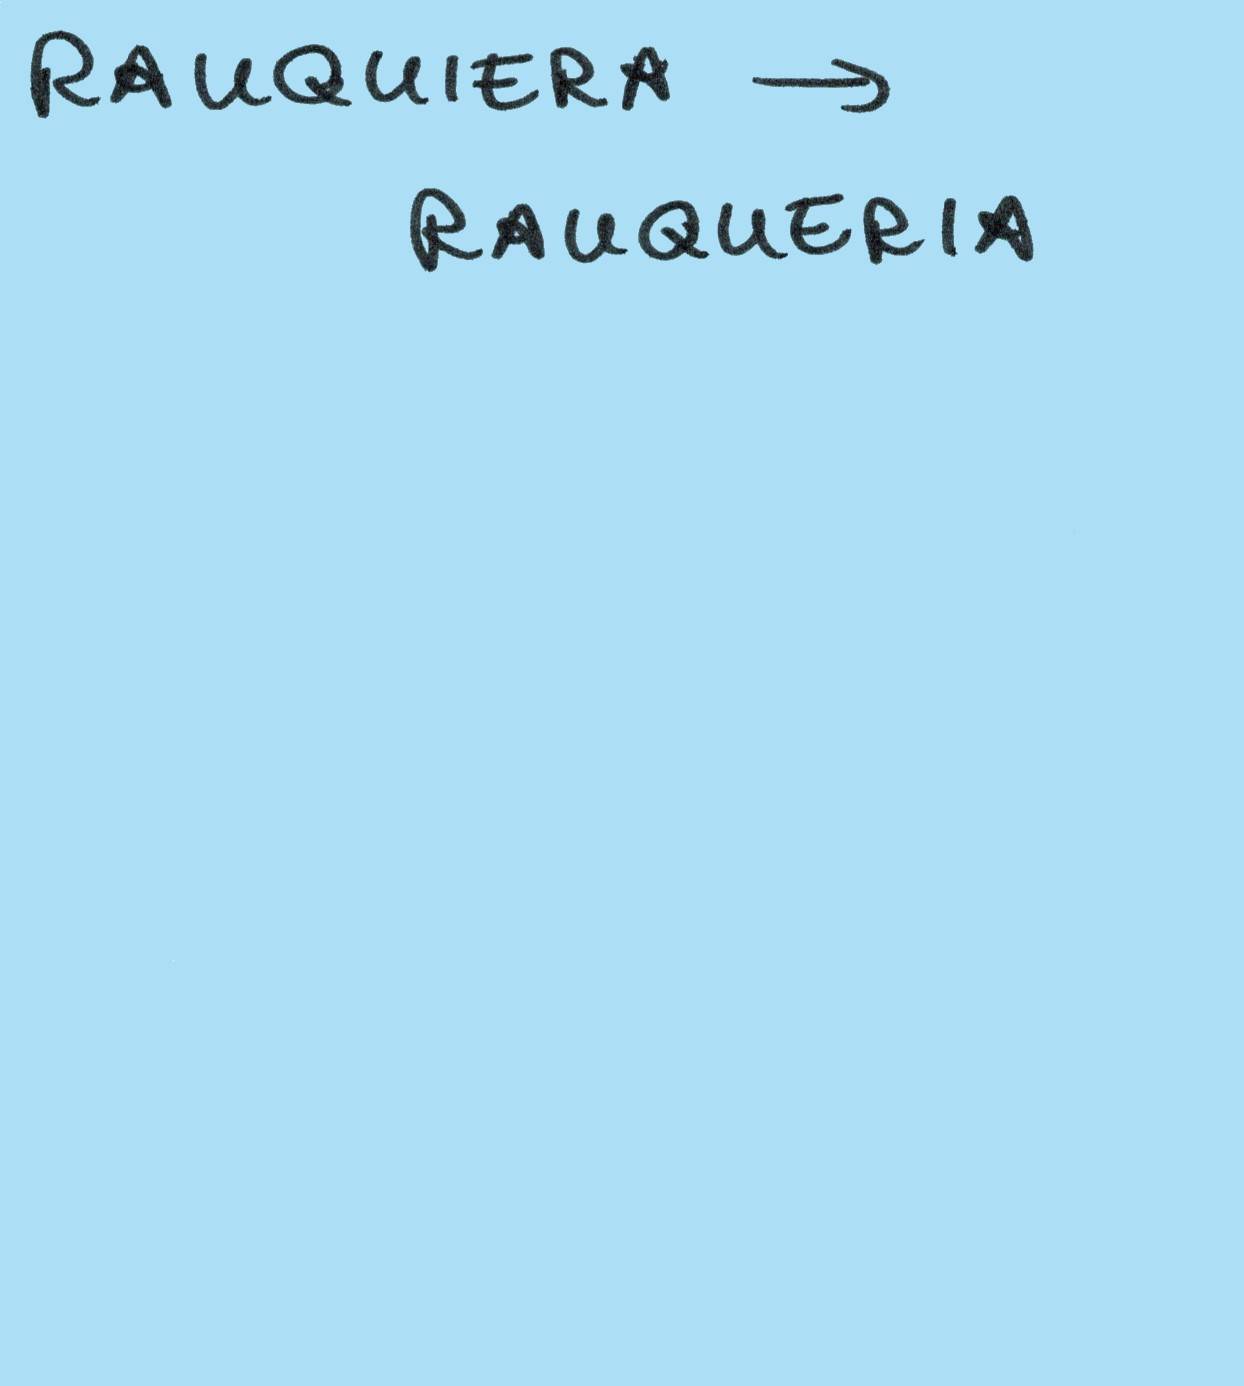 RAUQUIERA →
RAUQUERIA